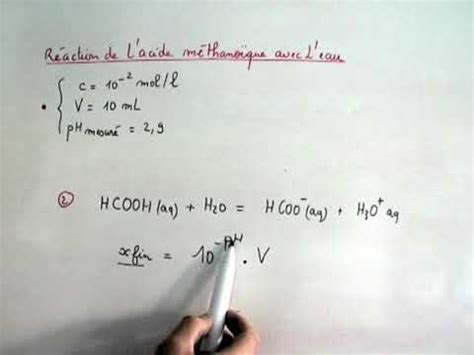 Réaction de l'acide méthanoïque avec l'eau
c = 10⁻² mol/l
V = 10 mL
pH mesuré = 2,9
② HCOOH (aq) + H₂O = HCOO⁻(aq) + H₃O⁺ aq
xfin = 10⁻ᵖᴴ . V